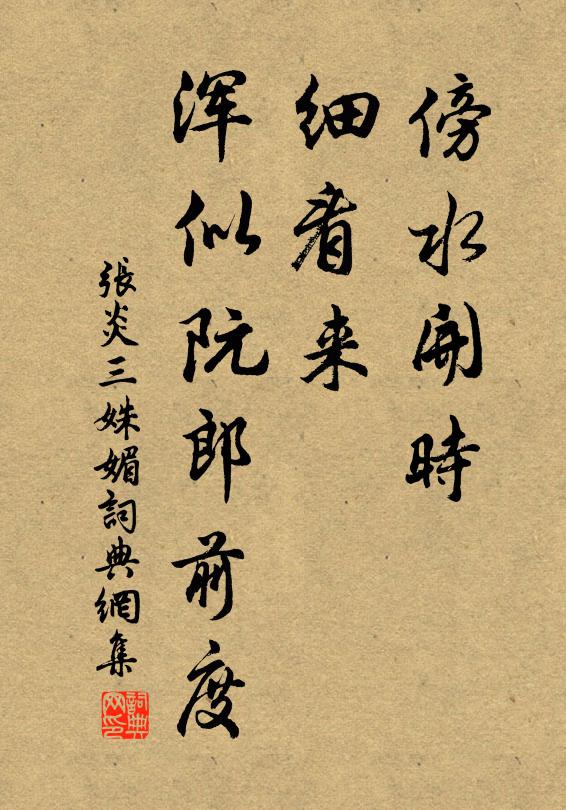 傍水開時
細看来
浑似阮郎前度
張炎三姝媚詞典網集
詞典网印